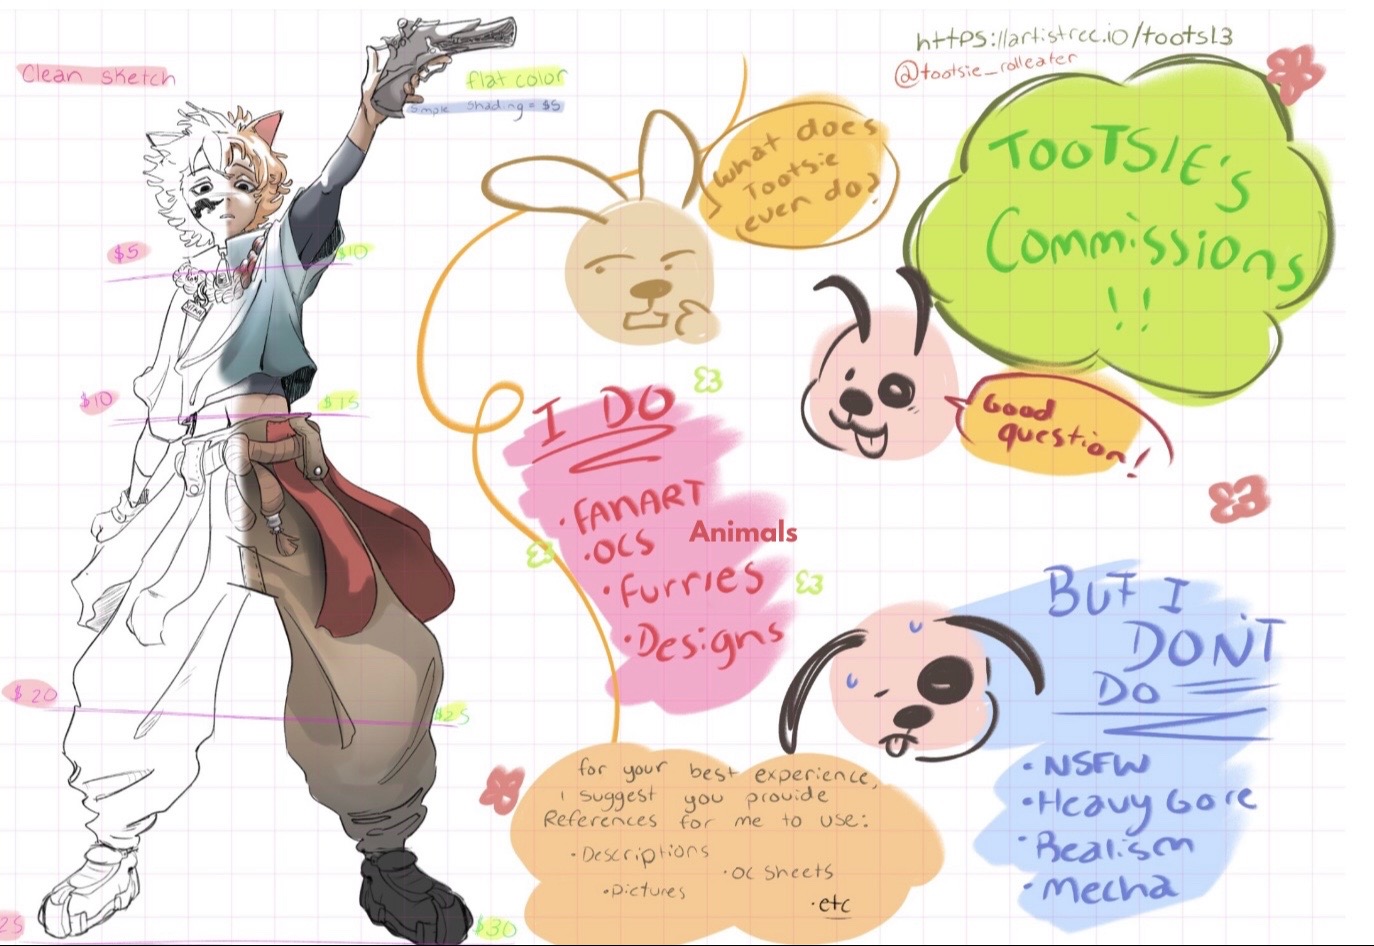 https://artistree.io/tootsl3
@tootsie_rolleater
Clean sketch
flat color
simple shading = $5
What does
Tootsie
even do?
TOOTSIE'S
Commissions
!!
$5
$10
Good
question!
$10
$15
I DO
• FANART
• OCS
Animals
• Furries
• Designs
BUT I
DON'T
DO
• NSFW
• Heavy Gore
• Realism
• Mecha
$20
$25
for your best experience,
i suggest you provide
References for me to use:
• Descriptions
• OC Sheets
• Pictures
• etc
25
$30